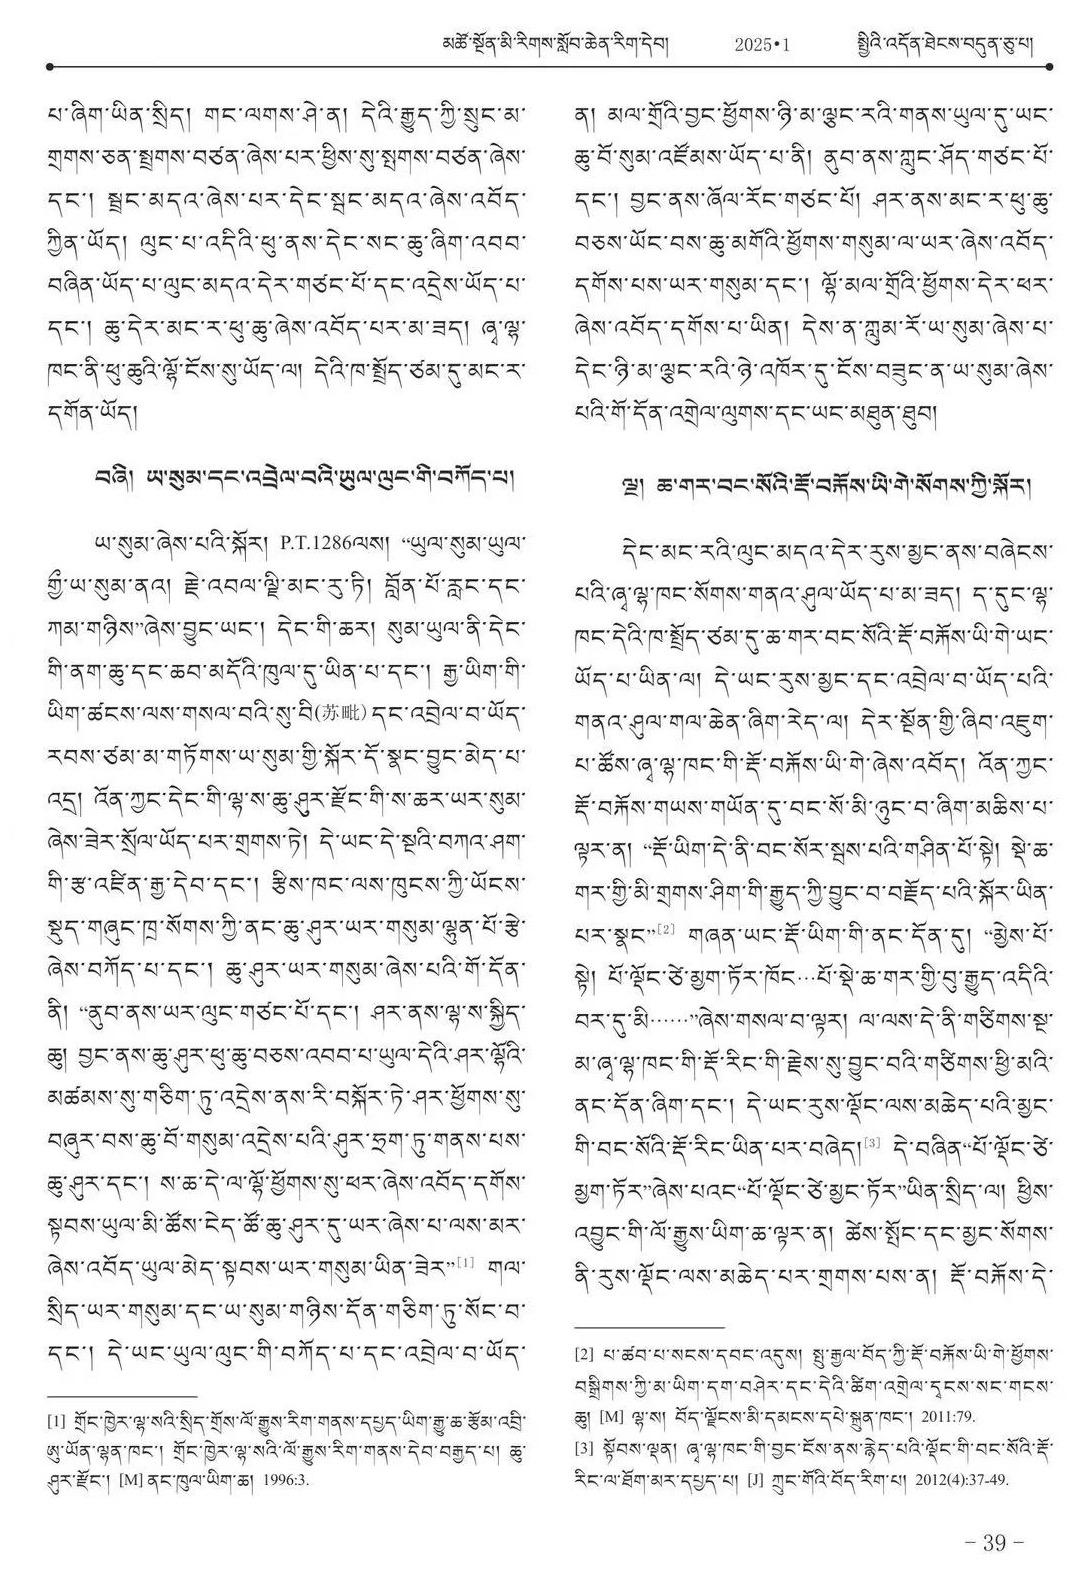 མཚོ་སྔོན་མི་རིགས་སློབ་ཆེན་རིག་དེབ། 2025•1 སྤྱིའི་འདོན་ཐེངས་བདུན་ཅུ་པ།
པ་ཞིག་ཡིན་སྲིད། གང་ལགས་ཤེ་ན། དེའི་རྒྱུད་ཀྱི་སྲུང་མ་
གྲགས་ཅན་སྤྲགས་བཙན་ཞེས་པར་ཕྱིས་སུ་སྤགས་བཙན་ཞེས་
དང་། སྦྲང་མདའ་ཞེས་པར་དེང་སྦང་མདའ་ཞེས་འབོད་
ཀྱིན་ཡོད། ལུང་པ་འདིའི་ཕུ་ནས་དེང་སང་ཆུ་ཞིག་འབབ་
བཞིན་ཡོད་པ་ལུང་མདའ་དེར་གཙང་པོ་དང་འདྲེས་ཡོད་པ་
དང་། ཆུ་དེར་མང་ར་ཕུ་ཆུ་ཞེས་འབོད་པར་མ་ཟད། ཞྭ་ལྷ་
ཁང་ནི་ཕུ་ཆུའི་ལྷོ་ངོས་སུ་ཡོད་ལ། དེའི་ཁ་སྤྲོད་ཙམ་དུ་མང་ར་
དགོན་ཡོད།
བཞི། ཡ་སུམ་དང་འབྲེལ་བའི་ཡུལ་ལུང་གི་བཀོད་པ།
ཡ་སུམ་ཞེས་པའི་སྐོར། P.T.1286ལས། “ཡུལ་སུམ་ཡུལ་
གྱི་ཡ་སུམ་ནའ། རྗེ་འབལ་ལྗི་མང་རུ་ཏི། བློན་པོ་རླང་དང་
ཀམ་གཉིས”ཞེས་བྱུང་ཡང་། དེང་གི་ཆར། སུམ་ཡུལ་ནི་དེང་
གི་ནག་ཆུ་དང་ཆབ་མདོའི་ཁུལ་དུ་ཡིན་པ་དང་། རྒྱ་ཡིག་གི་
ཡིག་ཚངས་ལས་གསལ་བའི་སུ་བི(苏毗)དང་འབྲེལ་བ་ཡོད་
རབས་ཙམ་མ་གཏོགས་ཡ་སུམ་གྱི་སྐོར་དོ་སྣང་བྱུང་མེད་པ་
འདྲ། འོན་ཀྱང་དེང་གི་ལྷ་ས་ཆུ་ཤུར་རྫོང་གི་ས་ཆར་ཡར་སུམ་
ཞེས་ཟེར་སྲོལ་ཡོད་པར་གྲགས་ཏེ། དེ་ཡང་དེ་སྔའི་བཀའ་ཤག་
གི་རྩ་འཛིན་རྒྱ་དེབ་དང་། རྩིས་ཁང་ལས་ཁུངས་ཀྱི་ཡོངས་
སྡུད་གཞུང་ཁྲ་སོགས་ཀྱི་ནང་ཆུ་ཤུར་ཡར་གསུམ་ལྷུན་པོ་རྩེ་
ཞེས་བཀོད་པ་དང་། ཆུ་ཤུར་ཡར་གསུམ་ཞེས་པའི་གོ་དོན་
ནི། “ནུབ་ནས་ཡར་ལུང་གཙང་པོ་དང་། ཤར་ནས་ལྷ་ས་སྐྱིད་
ཆུ། བྱང་ནས་ཆུ་ཤུར་ཕུ་ཆུ་བཅས་འབབ་པ་ཡུལ་དེའི་ཤར་ལྷོའི་
མཚམས་སུ་གཅིག་ཏུ་འདྲེས་ནས་རི་བསྐོར་ཏེ་ཤར་ཕྱོགས་སུ་
བཞུར་བས་ཆུ་བོ་གསུམ་འདྲེས་པའི་ཤུར་ཧྲག་ཏུ་གནས་པས་
ཆུ་ཤུར་དང་། ས་ཆ་དེ་ལ་ལྷོ་ཕྱོགས་སུ་ཕར་ཞེས་འབོད་དགོས་
སྟབས་ཡུལ་མི་ཚོས་ངེད་ཚོ་ཆུ་ཤུར་དུ་ཡར་ཞེས་པ་ལས་མར་
ཞེས་འབོད་ཡུལ་མེད་སྟབས་ཡར་གསུམ་ཡིན་ཟེར”[1] གལ་
སྲིད་ཡར་གསུམ་དང་ཡ་སུམ་གཉིས་དོན་གཅིག་ཏུ་སོང་བ་
དང་། དེ་ཡང་ཡུལ་ལུང་གི་བཀོད་པ་དང་འབྲེལ་བ་ཡོད་
[1] གྲོང་ཁྱེར་ལྷ་སའི་སྲིད་གྲོས་ལོ་རྒྱུས་རིག་གནས་དཔྱད་ཡིག་རྒྱུ་ཆ་རྩོམ་འབྲི་
ཨུ་ཡོན་ལྷན་ཁང་། གྲོང་ཁྱེར་ལྷ་སའི་ལོ་རྒྱུས་རིག་གནས་དེབ་བརྒྱད་པ། ཆུ་
ཤུར་རྫོང་། [M] ནང་ཁུལ་ཡིག་ཆ། 1996:3.
ན། མལ་གྲོའི་བྱང་ཕྱོགས་ཉི་མ་ལྕང་རའི་གནས་ཡུལ་དུ་ཡང་
ཆུ་བོ་སུམ་འཛོམས་ཡོད་པ་ནི། ནུབ་ནས་ཀླུང་ཤོད་གཙང་པོ་
དང་། བྱང་ནས་ཞོལ་རོང་གཙང་པོ། ཤར་ནས་མང་ར་ཕུ་ཆུ་
བཅས་ཡོང་བས་ཆུ་མགོའི་ཕྱོགས་གསུམ་ལ་ཡར་ཞེས་འབོད་
དགོས་པས་ཡར་གསུམ་དང་། ལྷོ་མལ་གྲོའི་ཕྱོགས་དེར་ཕར་
ཞེས་འབོད་དགོས་པ་ཡིན། དེས་ན་ཀླུམ་རོ་ཡ་སུམ་ཞེས་པ་
དེང་ཉི་མ་ལྕང་རའི་ཉེ་འཁོར་དུ་ངོས་བཟུང་ན་ཡ་སུམ་ཞེས་
པའི་གོ་དོན་འགྲེལ་ལུགས་དང་ཡང་མཐུན་ཐུབ།
ལྔ། ཆ་གར་བང་སོའི་རྡོ་བརྐོས་ཡི་གེ་སོགས་ཀྱི་སྐོར།
དེང་མང་རའི་ལུང་མདའ་དེར་རུས་མྱང་ནས་བཞེངས་
པའི་ཞྭ་ལྷ་ཁང་སོགས་གནའ་ཤུལ་ཡོད་པ་མ་ཟད། ད་དུང་ལྷ་
ཁང་དེའི་ཁ་སྤྲོད་ཙམ་དུ་ཆ་གར་བང་སོའི་རྡོ་བརྐོས་ཡི་གེ་ཡང་
ཡོད་པ་ཡིན་ལ། དེ་ཡང་རུས་མྱང་དང་འབྲེལ་བ་ཡོད་པའི་
གནའ་ཤུལ་གལ་ཆེན་ཞིག་རེད་ལ། དེར་སྔོན་གྱི་ཞིབ་འཇུག་
པ་ཚོས་ཞྭ་ལྷ་ཁང་གི་རྡོ་བརྐོས་ཡི་གེ་ཞེས་འབོད། འོན་ཀྱང་
རྡོ་བརྐོས་གཡས་གཡོན་དུ་བང་སོ་མི་ཉུང་བ་ཞིག་མཆིས་པ་
ལྟར་ན། “རྡོ་ཡིག་དེ་ནི་བང་སོར་སྦས་པའི་གཤིན་པོ་སྟེ། སྡེ་ཆ་
གར་གྱི་མི་གྲགས་ཤིག་གི་རྒྱུད་ཀྱི་བྱུང་བ་བརྗོད་པའི་སྐོར་ཡིན་
པར་སྣང”[2] གཞན་ཡང་རྡོ་ཡིག་གི་ནང་དོན་དུ། “མྱེས་པོ་
སྟེ། པོ་ལྡོང་ཙེ་མྱག་ཏོར་ཁོང…པོ་སྡེ་ཆ་གར་གྱི་བུ་རྒྱུད་འདིའི་
བར་དུ་མི……”ཞེས་གསལ་བ་ལྟར། ལ་ལས་དེ་ནི་གཙིགས་སྔ་
མ་ཞྭ་ལྷ་ཁང་གི་རྡོ་རིང་གི་རྗེས་སུ་བྱུང་བའི་གཙིགས་ཕྱི་མའི་
ནང་དོན་ཞིག་དང་། དེ་ཡང་རུས་ལྡོང་ལས་མཆེད་པའི་མྱང་
གི་བང་སོའི་རྡོ་རིང་ཡིན་པར་བཞེད།[3] དེ་བཞིན“པོ་ལྡོང་ཙེ་
མྱག་ཏོར”ཞེས་པའང“པོ་ལྡོང་ཙེ་མྱང་ཏོར”ཡིན་སྲིད་ལ། ཕྱིས་
འབྱུང་གི་ལོ་རྒྱུས་ཡིག་ཆ་ལྟར་ན། ཚེས་སྤོང་དང་མྱང་སོགས་
ནི་རུས་ལྡོང་ལས་མཆེད་པར་གྲགས་པས་ན། རྡོ་བརྐོས་དེ་
[2] པ་ཚབ་པ་སངས་དབང་འདུས། སྤུ་རྒྱལ་བོད་ཀྱི་རྡོ་བརྐོས་ཡི་གེ་ཕྱོགས་
བསྒྲིགས་ཀྱི་མ་ཡིག་དག་བཤེར་དང་དེའི་ཚིག་འགྲེལ་དྭངས་སང་གངས་
ཆུ། [M] ལྷ་ས། བོད་ལྗོངས་མི་དམངས་དཔེ་སྐྲུན་ཁང་། 2011:79.
[3] སྟོབས་ལྡན། ཞྭ་ལྷ་ཁང་གི་བྱང་ངོས་ནས་རྙེད་པའི་ལྡོང་གི་བང་སོའི་རྡོ་
རིང་ལ་ཐོག་མར་དཔྱད་པ། [J] ཀྲུང་གོའི་བོད་རིག་པ། 2012(4):37-49.
– 39 –